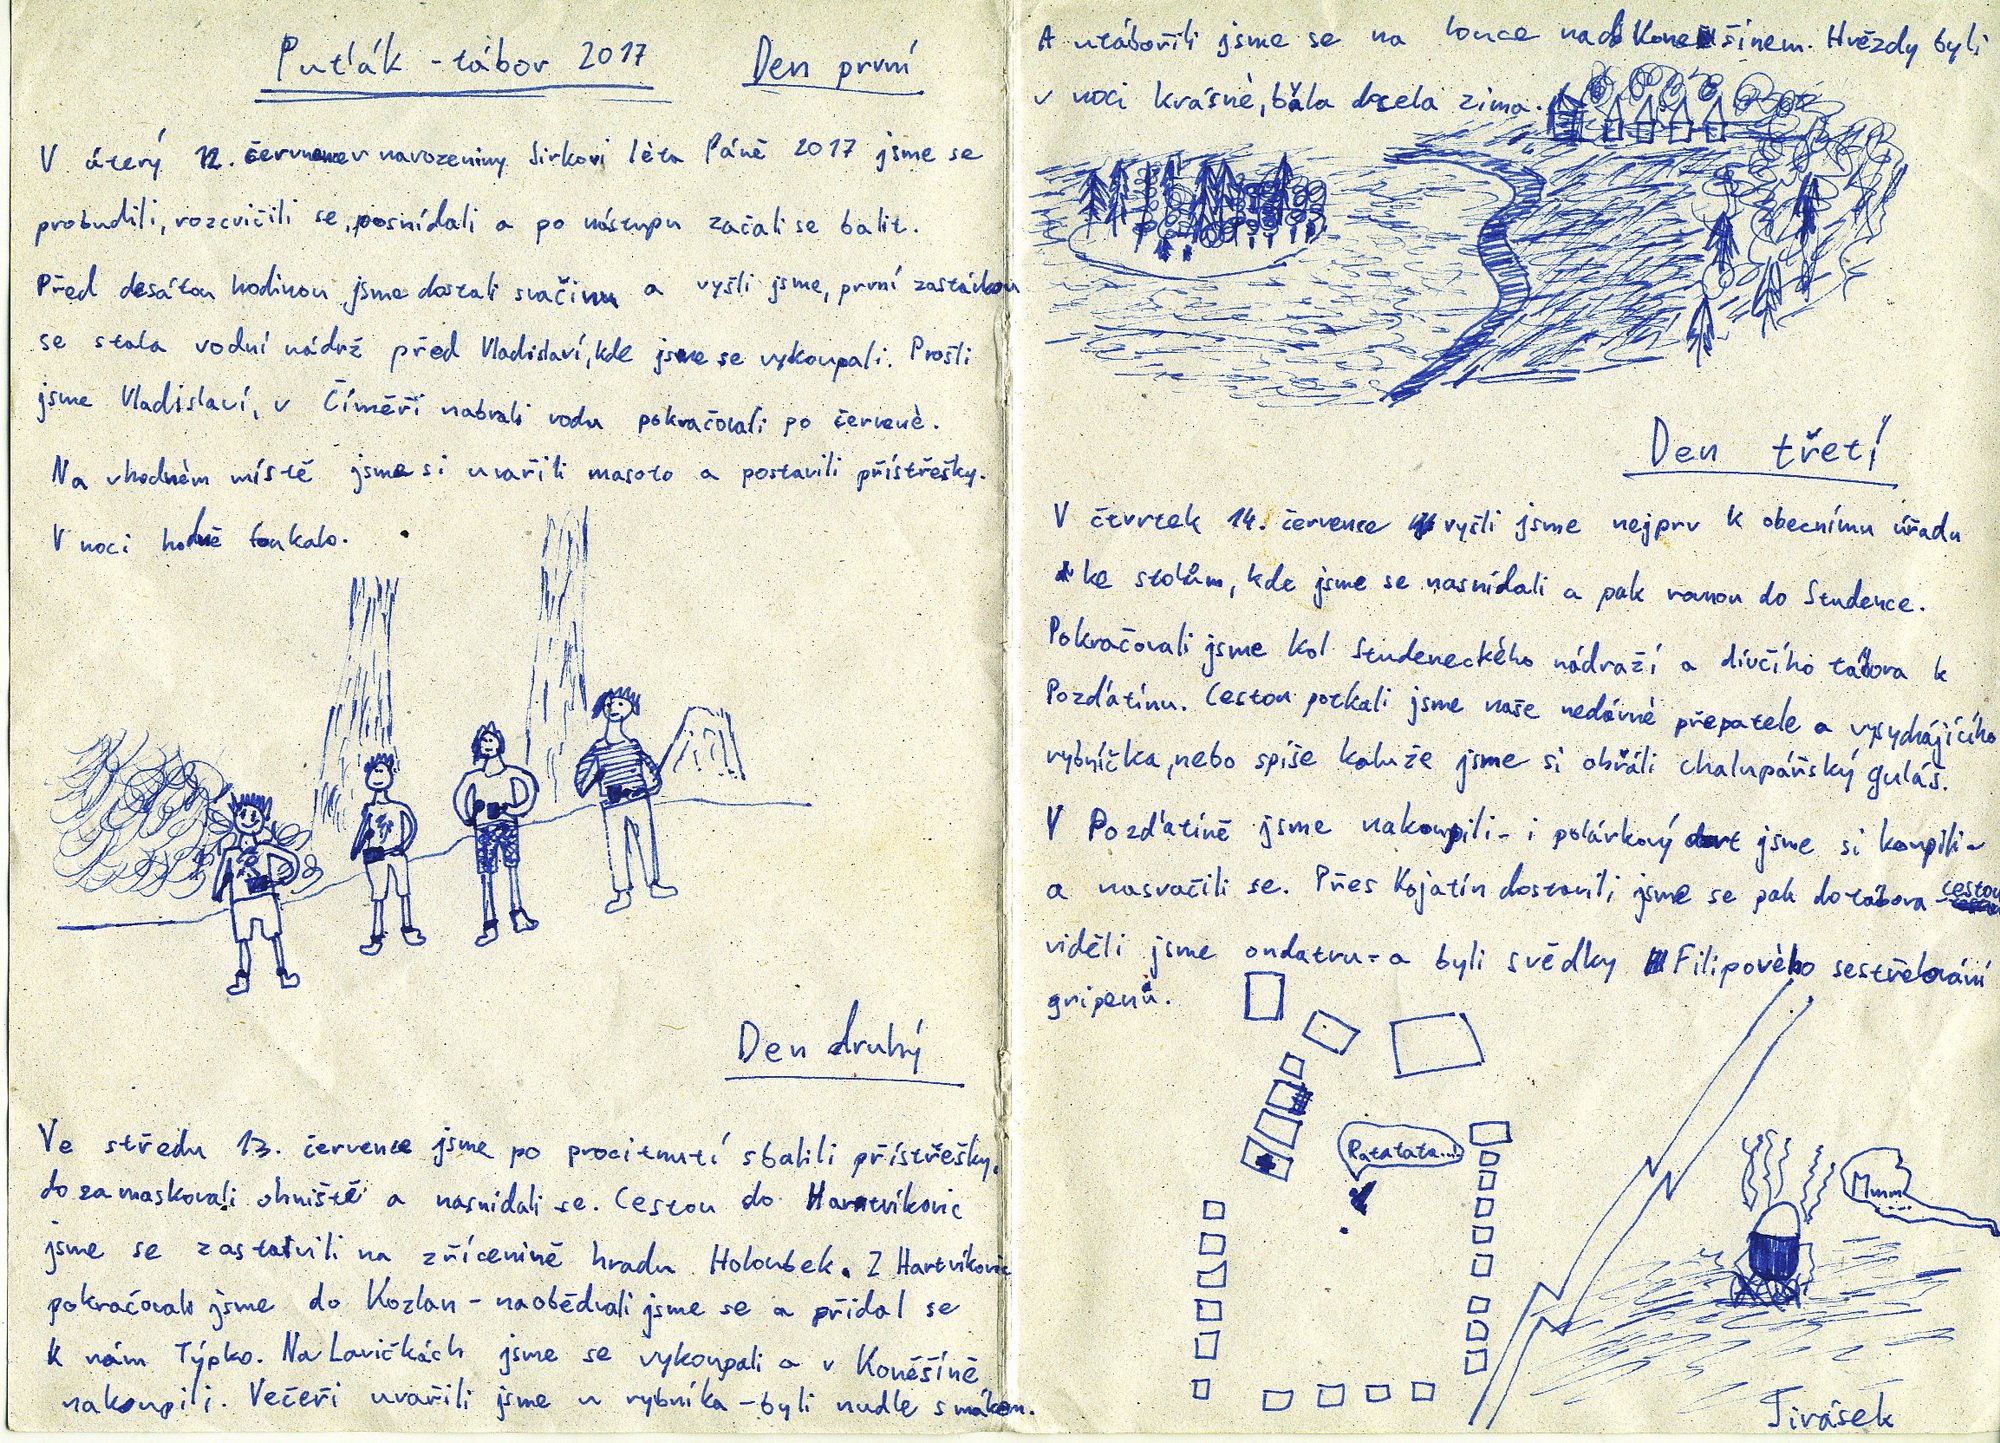 Puťák - tábor 2017 Den první
V úterý 12. července v narozeniny Sirkovi léta Páně 2017 jsme se
probudili, rozcvičili se, posnídali a po nástupu začali se balit.
Před desátou hodinou jsme dostali svačinu a vyšli jsme, první zastávkou
se stala vodní nádrž před Vladislaví, kde jsme se vykoupali. Prošli
jsme Vladislaví, v Číměři nabrali vodu pokračovali po červené.
Na vhodném místě jsme si uvařili masoto a postavili přístřešky.
V noci hodně foukalo.
Den druhý
Ve středu 13. července jsme po procitnutí sbalili přístřešky,
dozamaskovali ohniště a nasnídali se. Cestou do Hartvíkovic
jsme se zastavili na zřícenině hradu Holoubek. Z Hartvíkovic
pokračovali jsme do Kozlan - naobědvali jsme se a přidal se
k nám Týpko. Na Lavičkách jsme se vykoupali a v Koněšíně
nakoupili. Večeři uvařili jsme u rybníka - byli nudle s mákem.
A utábořili jsme se na louce nad Koněšínem. Hvězdy byli
v noci krásné, bála docela zima.
Den třetí
V čtvrtek 14. července vyšli jsme nejprv k obecnímu úřadu
ke stolům, kde jsme se nasnídali a pak rovnou do Studence.
Pokračovali jsme kol studeneckého nádraží a dívčího tábora k
Pozďatínu. Cestou potkali jsme naše nedávné přepatele a vysychajícího
rybníčka, nebo spíše kaluže jsme si obřáli chalupářský guláš.
V Pozďatíně jsme nakoupili - i polárkový dort jsme si koupili -
a nasvačili se. Přes Kojatín dostavili jsme se pak do tábora - cestou
viděli jsme ondatru - a byli svědky Filipového sestřelování
gripenů.
Ratatata...!
Mmm...
Jirásek